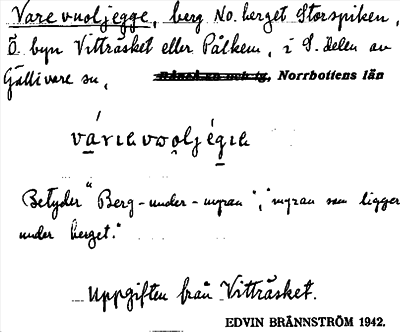 Varevuoljegge, berg No. berget Storspiken,
Ö. byn Vitträsket eller Pålkem, i S. delen av
Gällivare sn, Norrbottens län
Betyder "Berg-under-myran", "myran som ligger
under berget."
Uppgiften från Vitträsket.
EDVIN BRÄNNSTRÖM 1942.